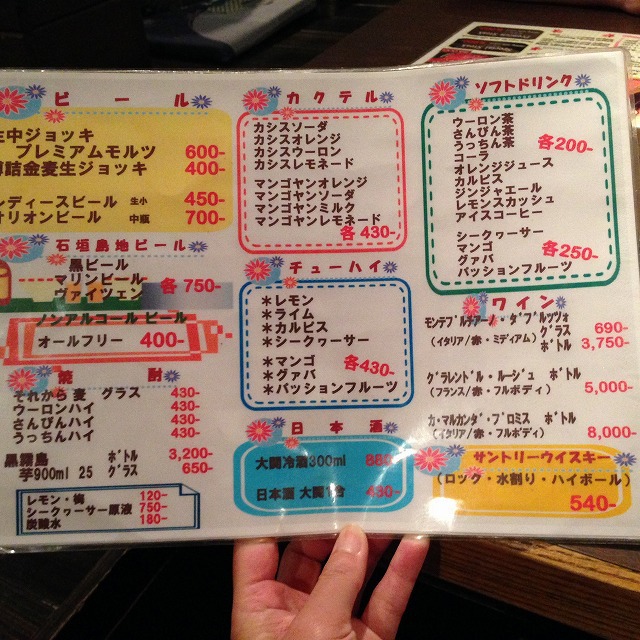 ビール
生中ジョッキ
プレミアムモルツ 600-
詰金麦生ジョッキ 400-
レディースビール 生小 450-
オリオンビール 中瓶 700-
石垣島地ビール
黒ビール
マリンビール
ヴァイツェン
各 750-
ノンアルコールビール
オールフリー 400-
焼酎
それから 麦 グラス 430-
ウーロンハイ 430-
さんぴんハイ 430-
うっちんハイ 430-
黒霧島 ボトル 3,200-
芋900ml 25 グラス 650-
レモン・梅 120-
シークヮーサー原液 750-
炭酸水 180-
カクテル
カシスソーダ
カシスオレンジ
カシスウーロン
カシスレモネード
マンゴヤンオレンジ
マンゴヤンソーダ
マンゴヤンミルク
マンゴヤンレモネード
各 430-
チューハイ
*レモン
*ライム
*カルピス
*シークヮーサー
*マンゴ
*グァバ
*パッションフルーツ
各430-
日本酒
大関冷酒300ml
日本酒 大関1合 430-
ソフトドリンク
ウーロン茶
さんぴん茶
うっちん茶
コーラ
オレンジジュース
カルピス
ジンジャエール
レモンスカッシュ
アイスコーヒー
各200-
シークヮーサー
マンゴ
グァバ
パッションフルーツ
各250-
ワイン
モンテプルチアーノ・ダブルッツォ
(イタリア/赤・ミディアム) グラス 690-
ボトル 3,750-
グラレンドル・ルージュ ボトル
(フランス/赤・フルボディ) 5,000-
カ・マルカンダ・プロミス ボトル
(イタリア/赤・フルボディ) 8,000-
サントリーウイスキー
(ロック・水割り・ハイボール)
540-